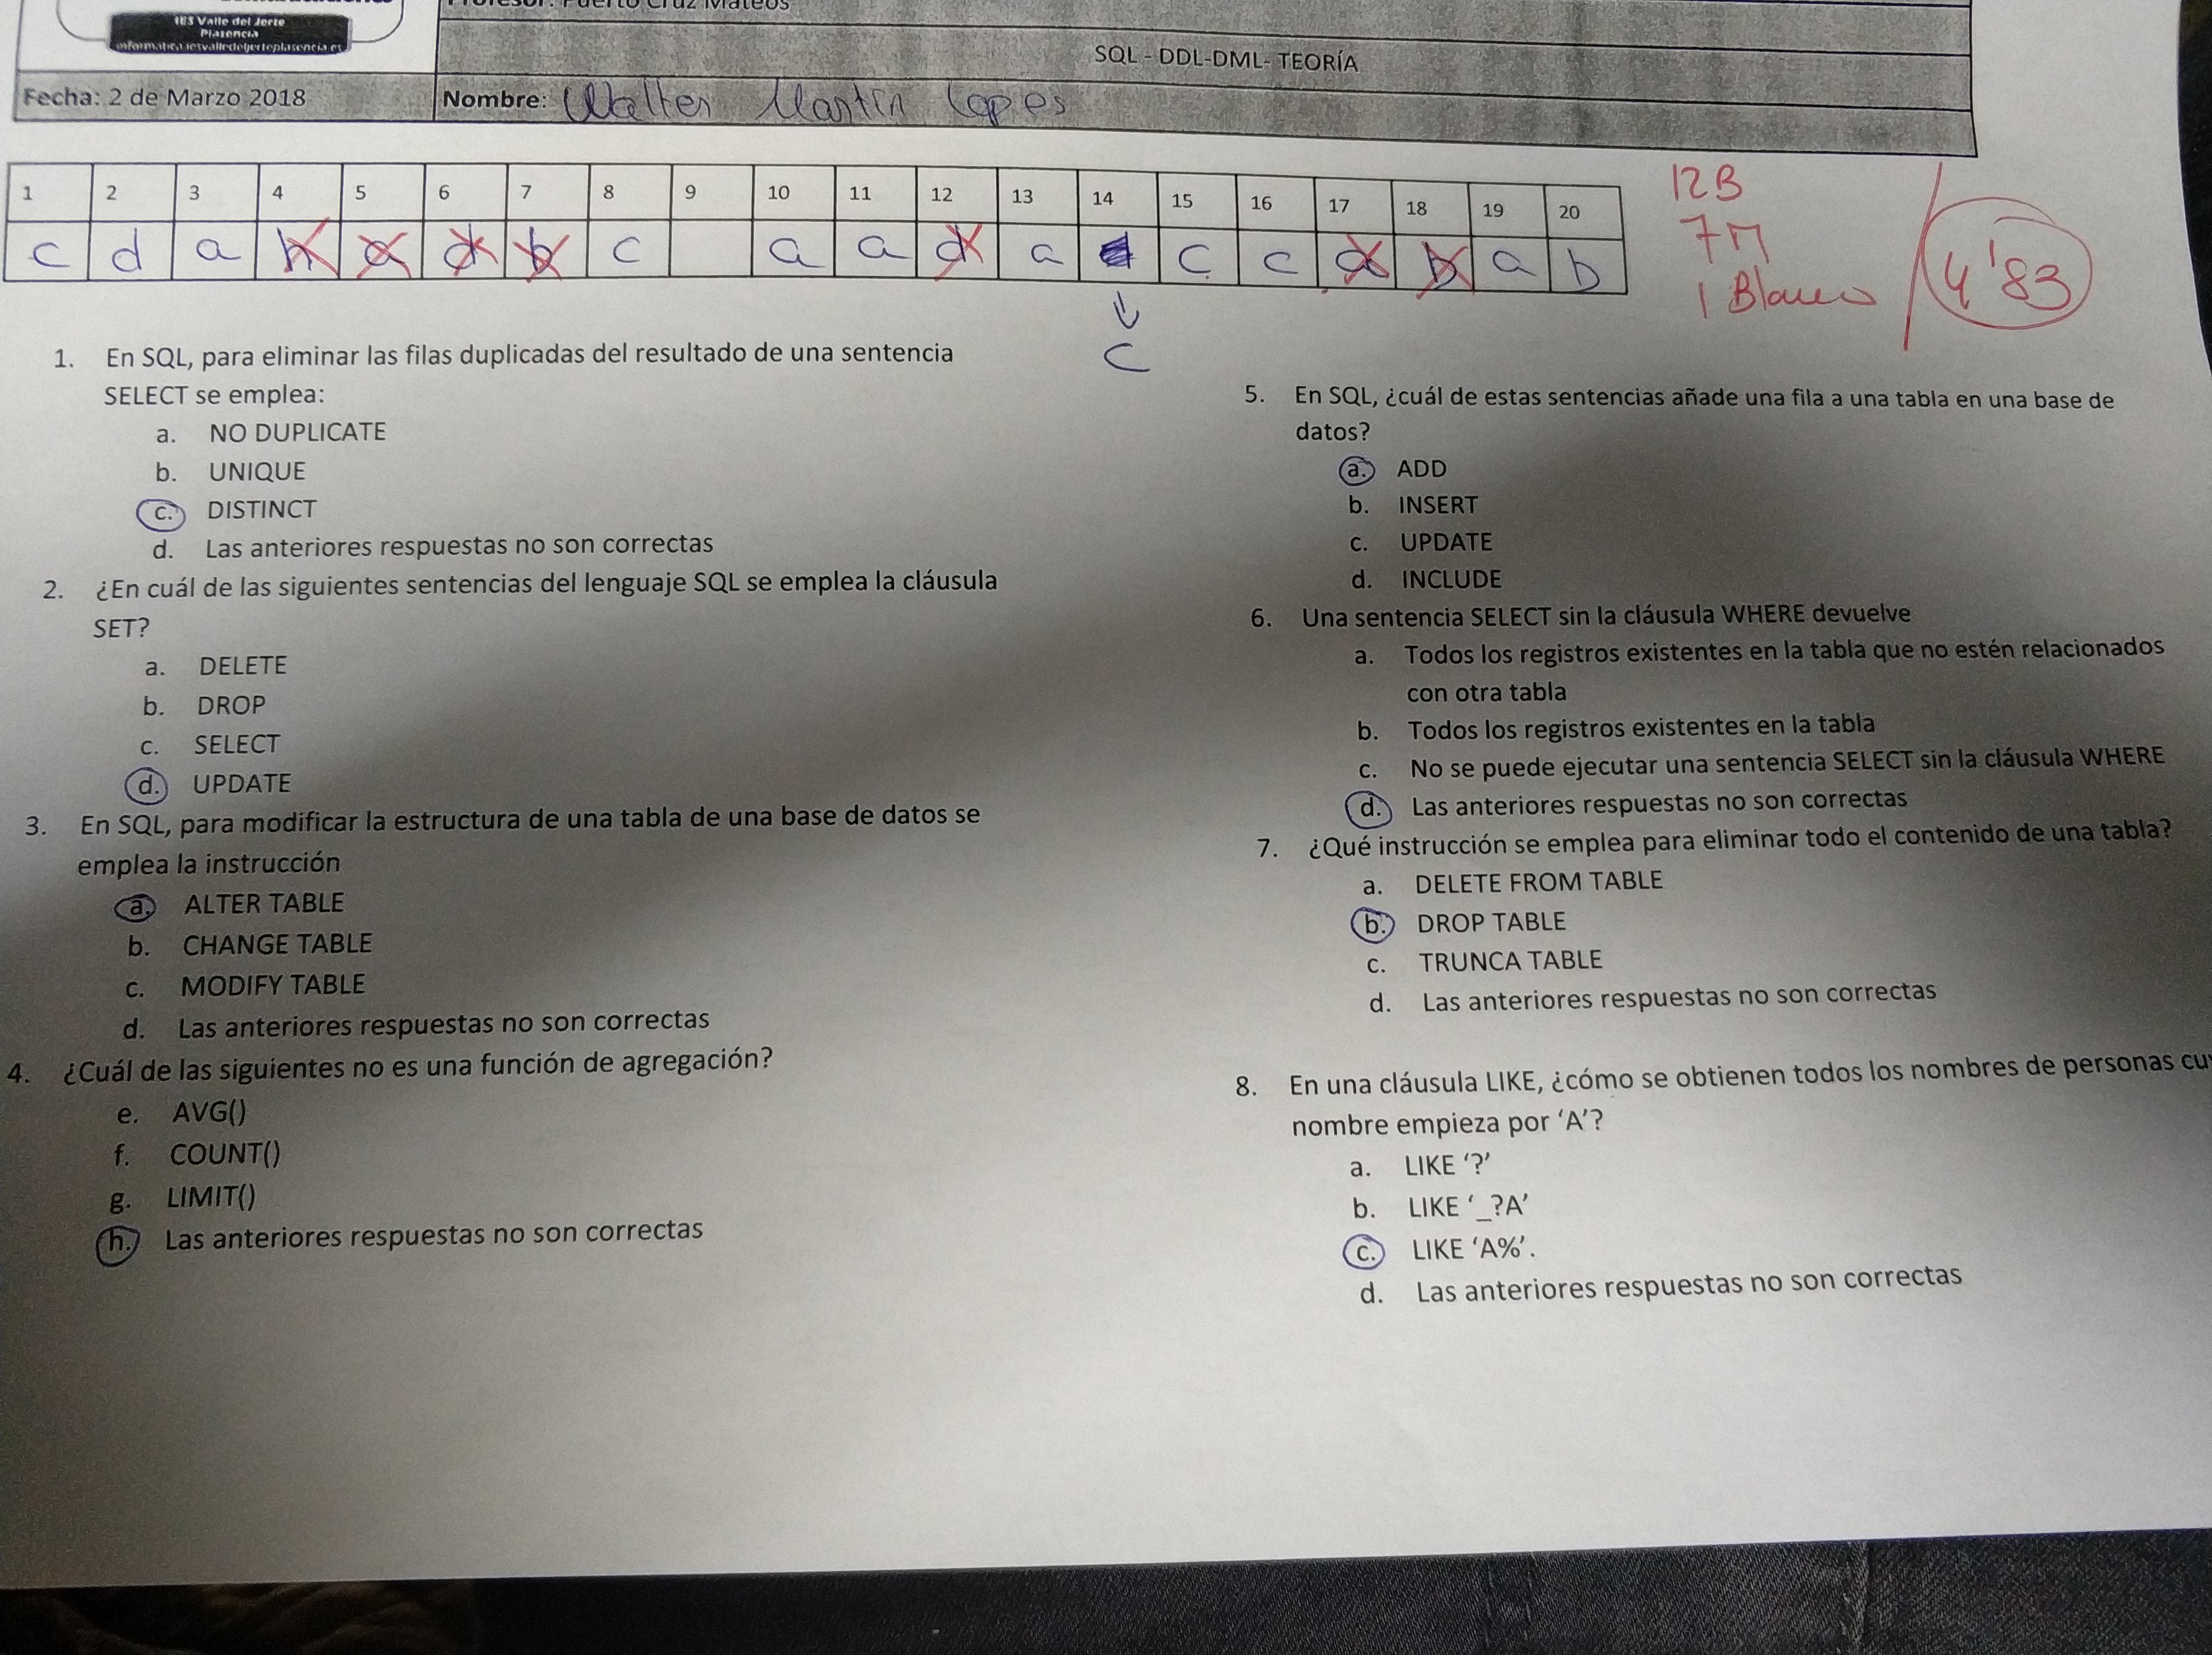 IES Valle del Jerte
Plasencia
informatica.iesvalledeljerteplasencia.es
Profesor: Puerto Cruz Mateos
SQL - DDL-DML- TEORÍA
Fecha: 2 de Marzo 2018
Nombre: Walter Martín Lopes
1 2 3 4 5 6 7 8 9 10 11 12 13 14 15 16 17 18 19 20
c d a h a d b c a a d a c c a b a b
c
12B
7M
1 Blanco
4'83
1. En SQL, para eliminar las filas duplicadas del resultado de una sentencia
SELECT se emplea:
a. NO DUPLICATE
b. UNIQUE
c. DISTINCT
d. Las anteriores respuestas no son correctas
2. ¿En cuál de las siguientes sentencias del lenguaje SQL se emplea la cláusula
SET?
a. DELETE
b. DROP
c. SELECT
d. UPDATE
3. En SQL, para modificar la estructura de una tabla de una base de datos se
emplea la instrucción
a. ALTER TABLE
b. CHANGE TABLE
c. MODIFY TABLE
d. Las anteriores respuestas no son correctas
4. ¿Cuál de las siguientes no es una función de agregación?
e. AVG()
f. COUNT()
g. LIMIT()
h. Las anteriores respuestas no son correctas
5. En SQL, ¿cuál de estas sentencias añade una fila a una tabla en una base de
datos?
a. ADD
b. INSERT
c. UPDATE
d. INCLUDE
6. Una sentencia SELECT sin la cláusula WHERE devuelve
a. Todos los registros existentes en la tabla que no estén relacionados
con otra tabla
b. Todos los registros existentes en la tabla
c. No se puede ejecutar una sentencia SELECT sin la cláusula WHERE
d. Las anteriores respuestas no son correctas
7. ¿Qué instrucción se emplea para eliminar todo el contenido de una tabla?
a. DELETE FROM TABLE
b. DROP TABLE
c. TRUNCA TABLE
d. Las anteriores respuestas no son correctas
8. En una cláusula LIKE, ¿cómo se obtienen todos los nombres de personas cu
nombre empieza por ‘A’?
a. LIKE ‘?’
b. LIKE ‘_?A’
c. LIKE ‘A%’.
d. Las anteriores respuestas no son correctas